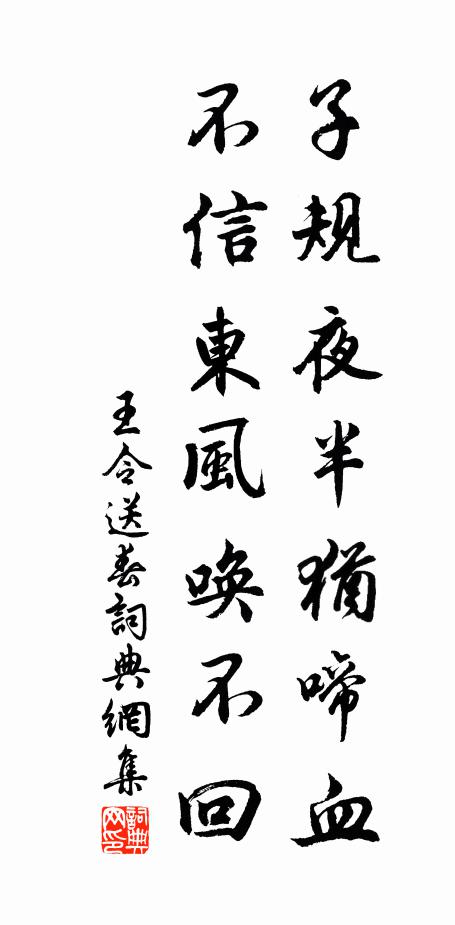 子規夜半猶啼血
不信東風喚不回
王令送春詞典網集
詞典网印